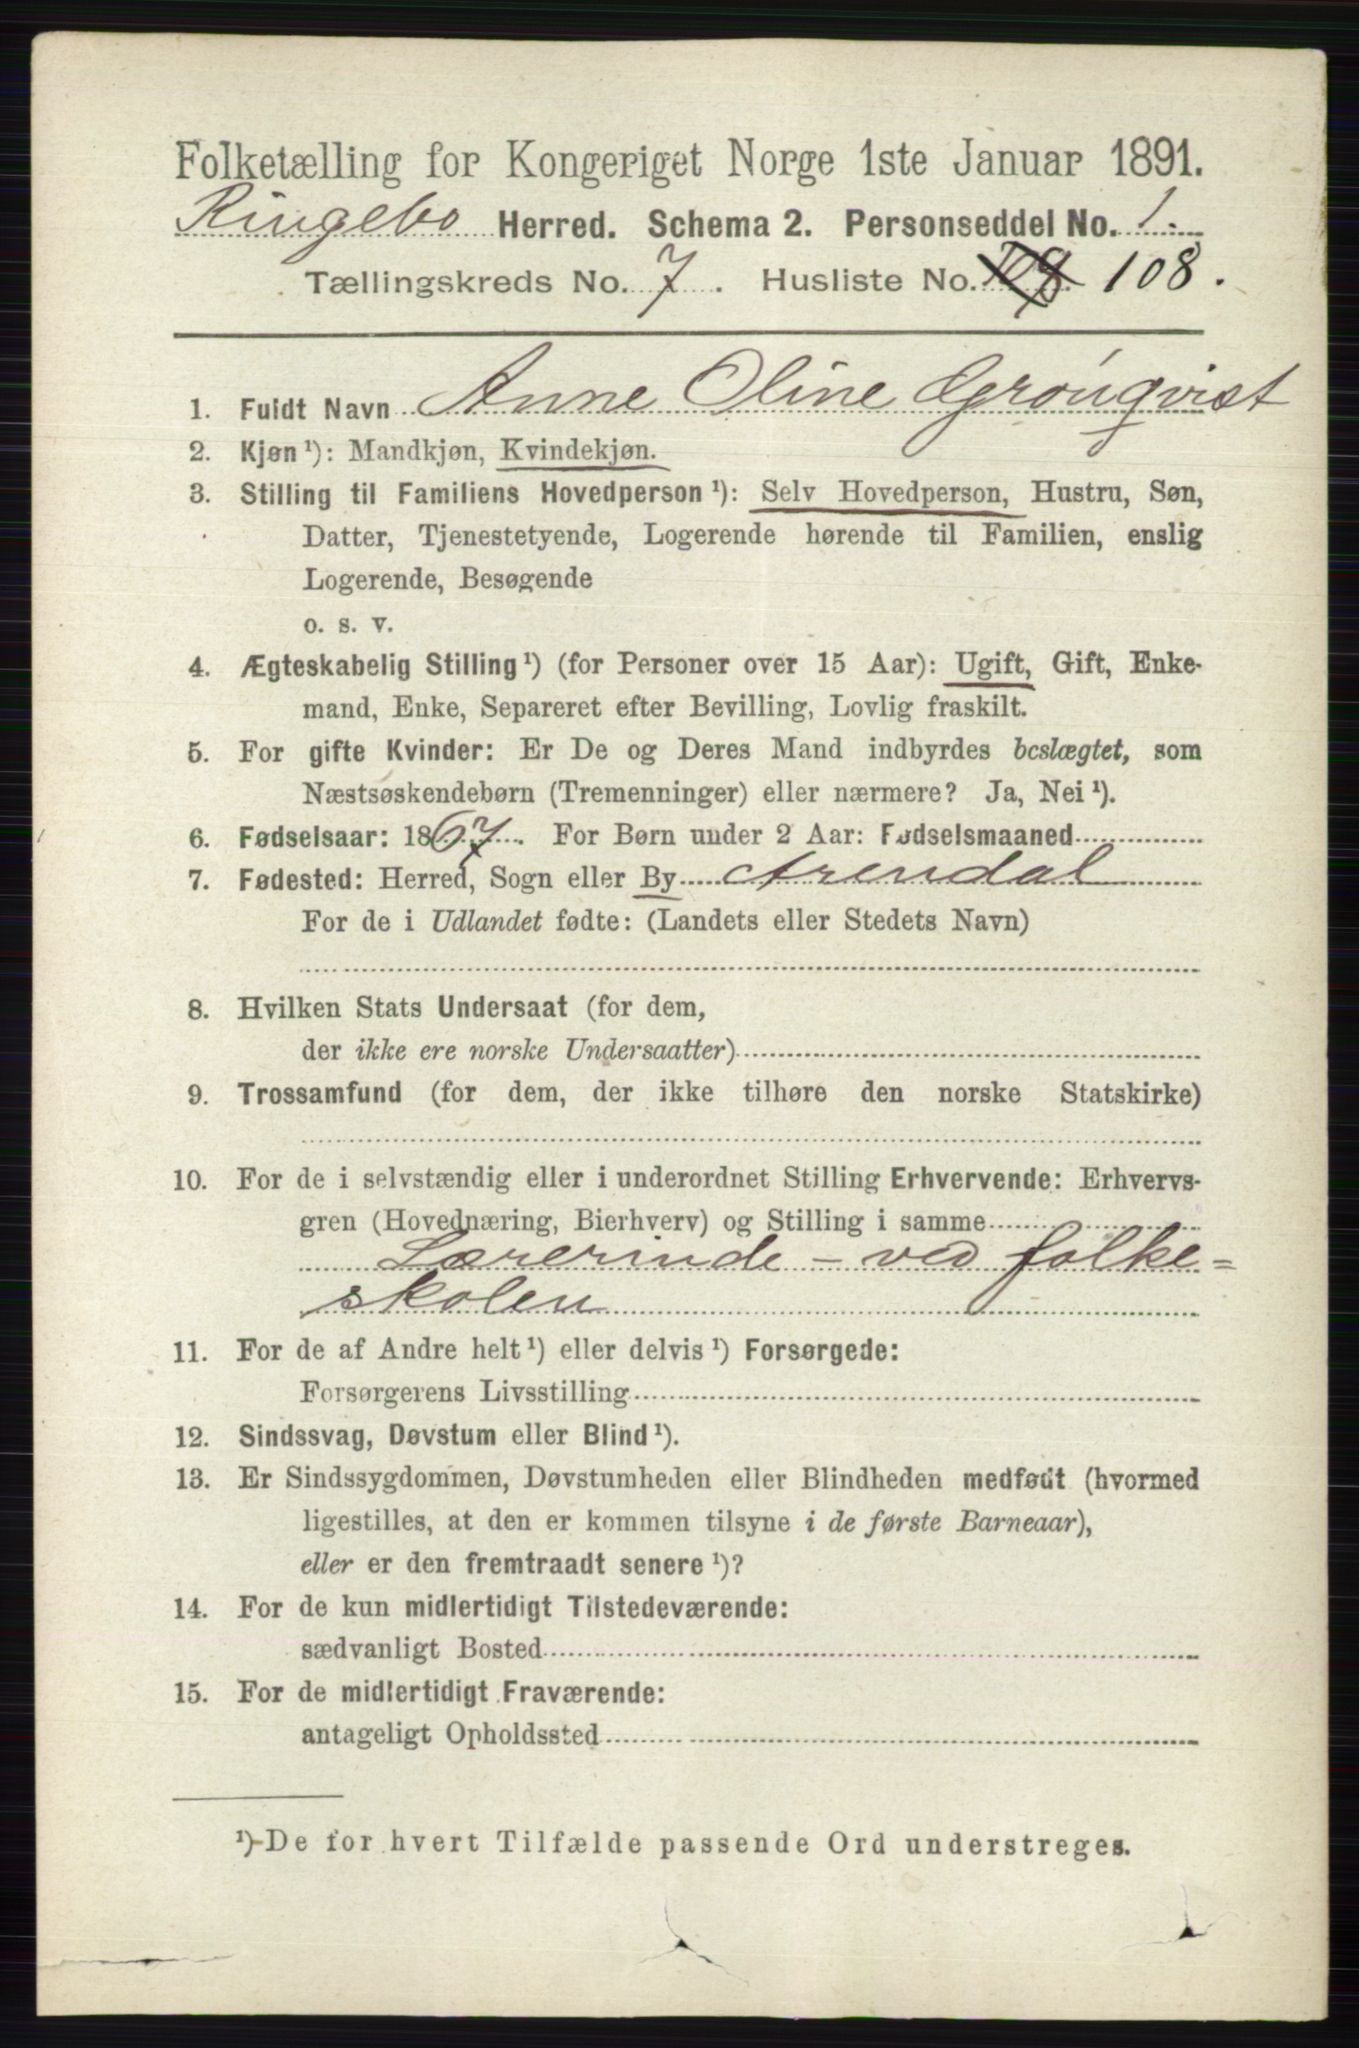 Folketælling for Kongeriget Norge 1ste Januar 1891.
Ringebo Herred. Schema 2. Personseddel No. 1.
Tællingskreds No. 7. Husliste No. 108.
1. Fuldt Navn Anne Oline Grönqvist
2. Kjøn ¹): Mandkjøn, Kvindekjøn.
3. Stilling til Familiens Hovedperson ¹): Selv Hovedperson, Hustru, Søn,
Datter, Tjenestetyende, Logerende hørende til Familien, enslig
Logerende, Besøgende
o. s. v.
4. Ægteskabelig Stilling ¹) (for Personer over 15 Aar): Ugift, Gift, Enke-
mand, Enke, Separeret efter Bevilling, Lovlig fraskilt.
5. For gifte Kvinder: Er De og Deres Mand indbyrdes beslægtet, som
Næstsøskendebørn (Tremenninger) eller nærmere? Ja, Nei ¹).
6. Fødselsaar: 1867. For Børn under 2 Aar: Fødselsmaaned
7. Fødested: Herred, Sogn eller By Arendal
For de i Udlandet fødte: (Landets eller Stedets Navn)
8. Hvilken Stats Undersaat (for dem,
der ikke ere norske Undersaatter)
9. Trossamfund (for dem, der ikke tilhøre den norske Statskirke)
10. For de i selvstændig eller i underordnet Stilling Erhvervende: Erhvervs-
gren (Hovednæring, Bierhverv) og Stilling i samme
Lærerinde - ved folke=
skolen
11. For de af Andre helt ¹) eller delvis ¹) Forsørgede:
Forsørgerens Livsstilling
12. Sindssvag, Døvstum eller Blind ¹).
13. Er Sindssygdommen, Døvstumheden eller Blindheden medfødt (hvormed
ligestilles, at den er kommen tilsyne i de første Barneaar),
eller er den fremtraadt senere ¹)?
14. For de kun midlertidigt Tilstedeværende:
sædvanligt Bosted
15. For de midlertidigt Fraværende:
antageligt Opholdssted
¹) De for hvert Tilfælde passende Ord understreges.